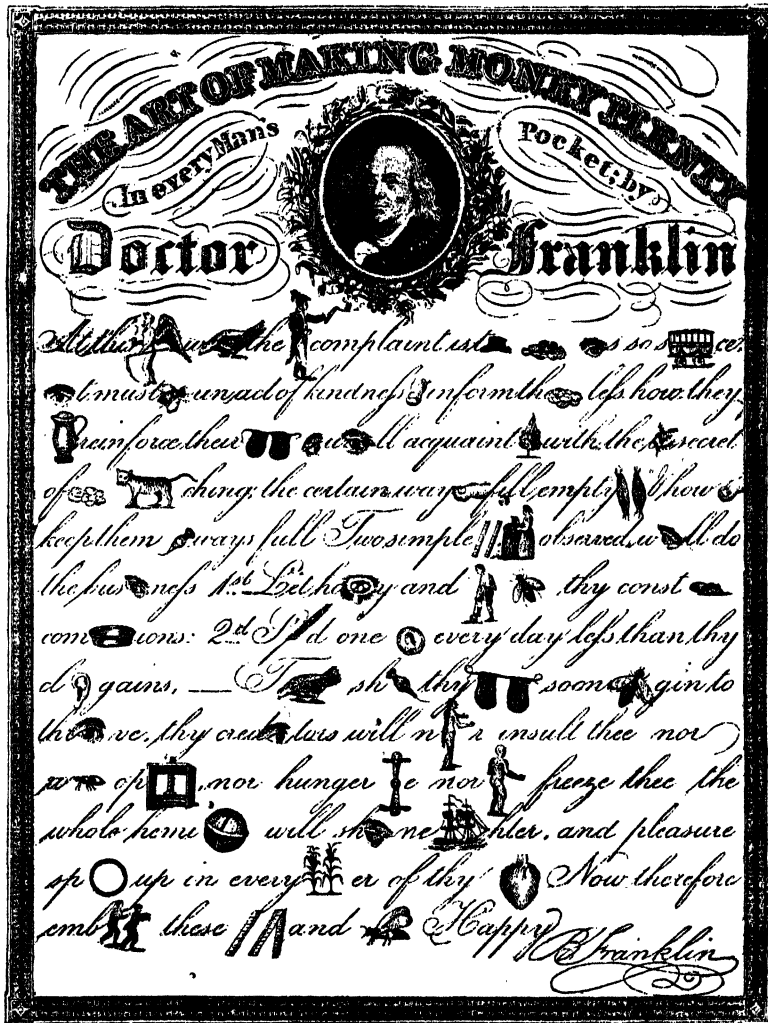 THE ART OF MAKING MONEY PLENTY
In every Man's Pocket; by
Doctor Franklin
At this the complaint is t s so s ce,
t must un act of kindness inform the less how they
reinforce their ll acquaint with the secret
of ching; the certain way fill empty & how
keep them ways full Two simple observed, w ll do
the bus ness 1st Let ho y and thy const
com ions: 2d S d one every day less than thy
d gains, — T sh thy soon gin to
th ve, thy cred tors will n r insult thee nor
w op , nor hunger e nor freeze thee the
whole hemi will sh ne hter, and pleasure
sp up in every er of thy Now therefore
emb these and Happy
B Franklin